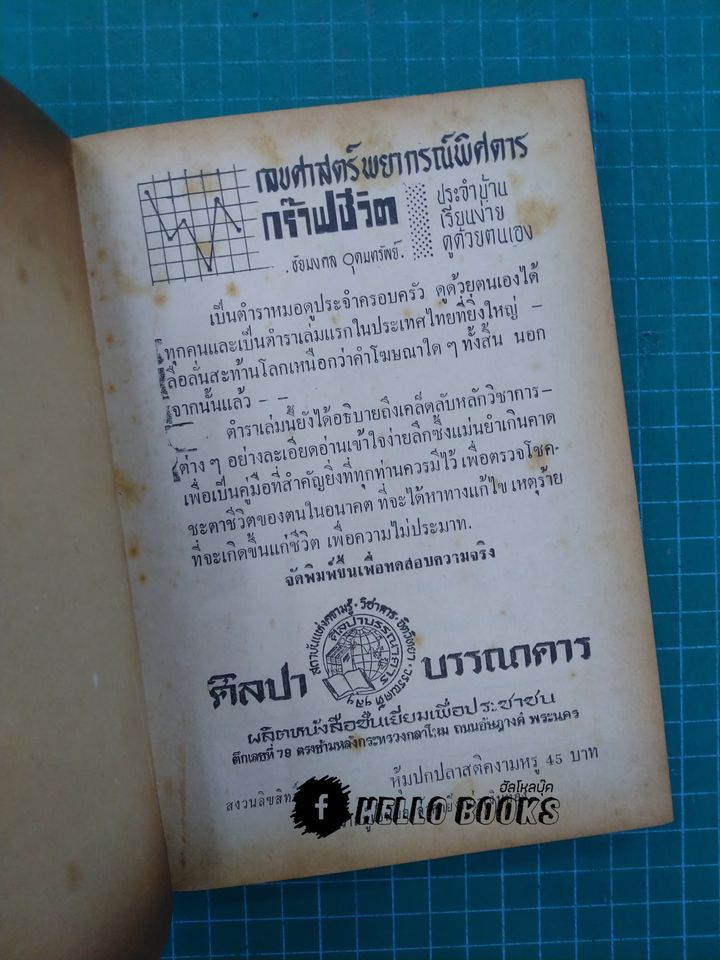 เลขศาสตร์พยากรณ์พิศดาร
กร๊าฟชีวิต
ประจำบ้าน
เรียนง่าย
ดูด้วยตนเอง
.ชัยมงคล อุดมทรัพย์.
เป็นตำราหมอดูประจำครอบครัว ดูด้วยตนเองได้
ทุกคนและเป็นตำราเล่มแรกในประเทศไทยที่ยิ่งใหญ่ –
ลือลั่นสะท้านโลกเหนือกว่าคำโฆษณาใด ๆ ทั้งสิ้น นอก
จากนั้นแล้ว – –
ตำราเล่มนี้ยังได้อธิบายถึงเคล็ดลับหลักวิชาการ–
ต่าง ๆ อย่างละเอียดอ่านเข้าใจง่ายลึกซึ้งแม่นยำเกินคาด
เพื่อเป็นคู่มือที่สำคัญยิ่งที่ทุกท่านควรมีไว้ เพื่อตรวจโชค-
ชะตาชีวิตของตนในอนาคต ที่จะได้หาทางแก้ไข เหตุร้าย
ที่จะเกิดขึ้นแก่ชีวิต เพื่อความไม่ประมาท.
จัดพิมพ์ขึ้นเพื่อทดสอบความจริง
สถาบันแห่งความรู้ · วิชาการ · จิตวิทยา · วรรณคดี
ศิลปาบรรณาคาร
ศิลปา บรรณาคาร
ผลิตหนังสือชั้นเยี่ยมเพื่อประชาชน
ตึกเลขที่ 79 ตรงข้ามหลังกระทรวงกลาโหม ถนนอัษฎางค์ พระนคร
หุ้มปกปลาสติคงามหรู 45 บาท
สงวนลิขสิทธิ์
ฮัลโหลบุ๊ค
f HELLO BOOKS